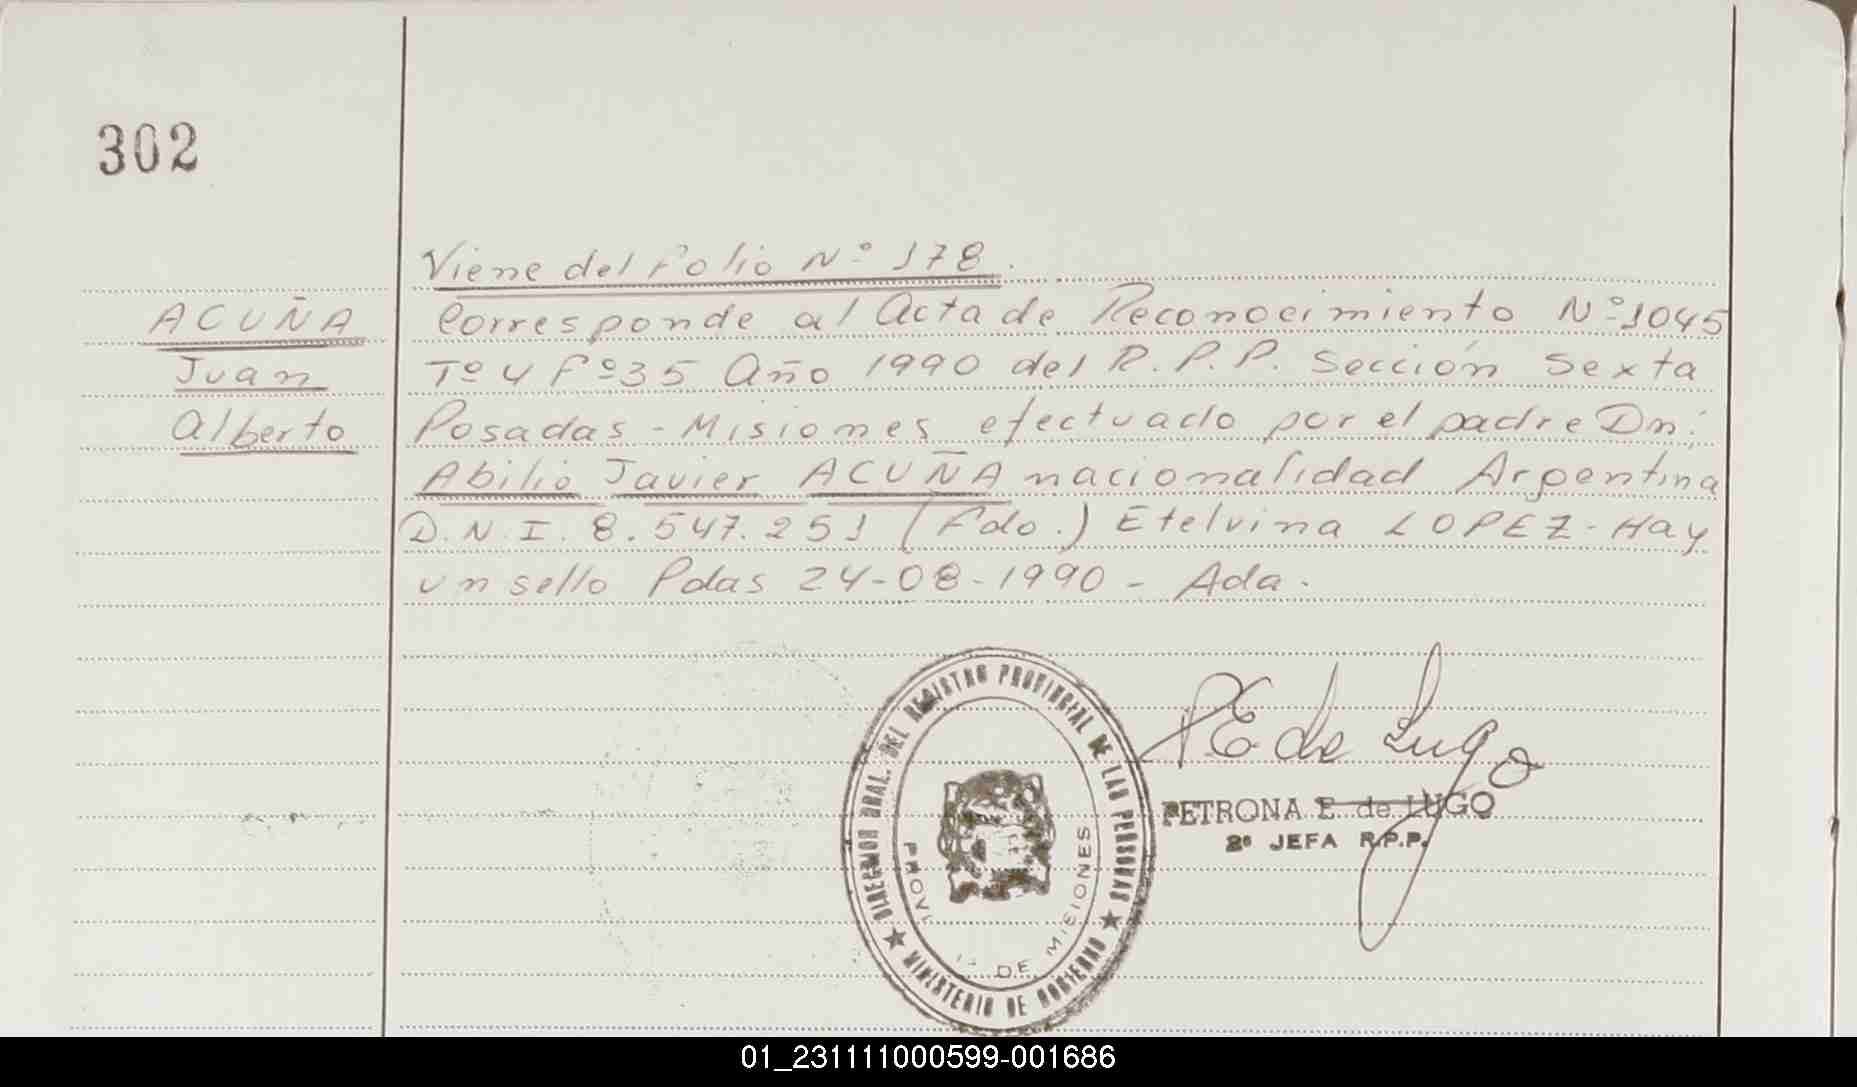 302
Viene del folio Nº 178.
ACUÑA
Juan
Alberto
Corresponde al Acta de Reconocimiento Nº 1045
Tº 4 Fº 35 Año 1990 del R.P.P. Sección Sexta
Posadas - Misiones efectuado por el padre Dn:
Abilio Javier ACUÑA nacionalidad Argentina
D.N.I. 8.547.251 (Fdo.) Etelvina LOPEZ - Hay
un sello Pdas 24-08-1990 - Ada.
DIRECCION GRAL. DEL REGISTRO PROVINCIAL DE LAS PERSONAS
★ MINISTERIO DE GOBIERNO ★
DE MISIONES
P E de Lugo
PETRONA E. de LUGO
2º JEFA R.P.P.
01_231111000599-001686